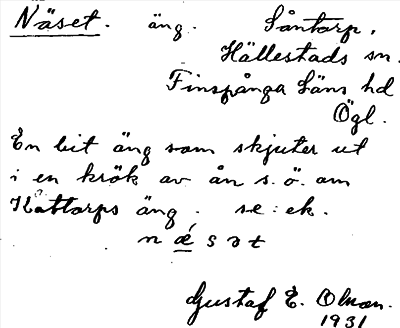 Näset. äng. Såntorp.
Hällestads sn.
Finspånga Läns hd
Ögl.
En bit äng som skjuter ut
i en krök av ån s. ö. om
Kattorps äng. se: ek.
n ǽ s ə t
Gustaf E. Olson.
1931